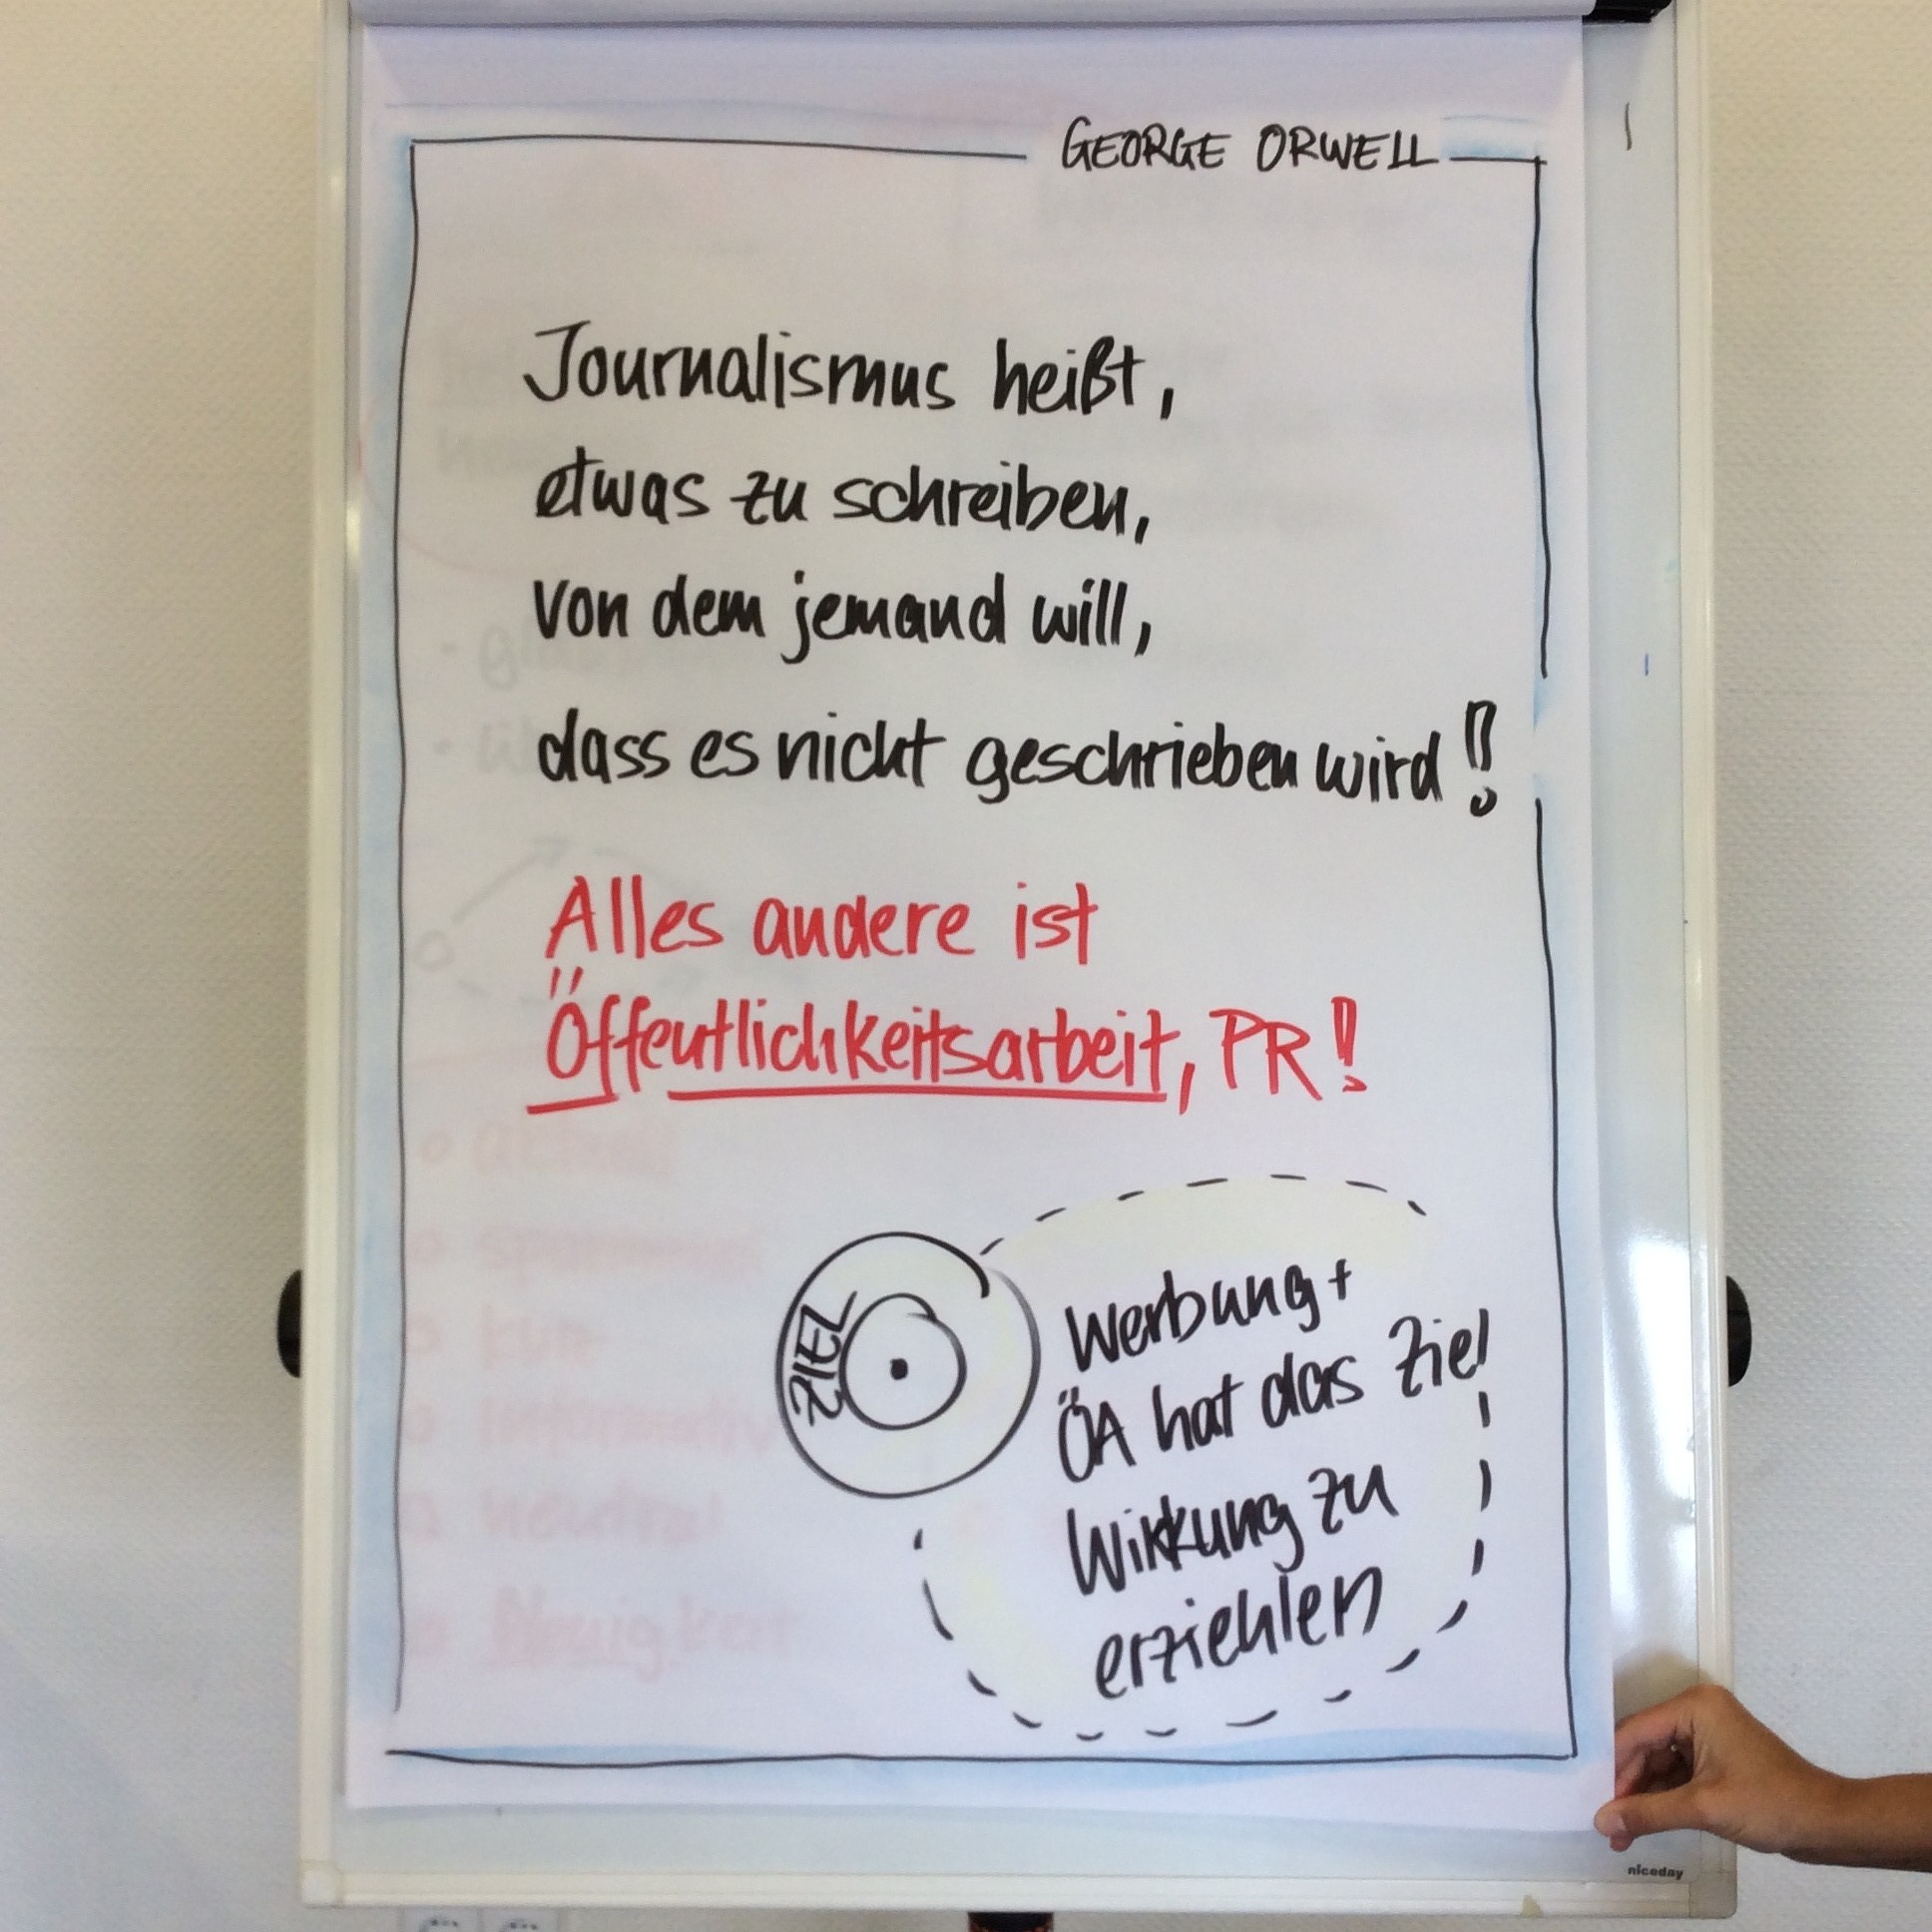 GEORGE ORWELL
Journalismus heißt,
etwas zu schreiben,
von dem jemand will,
dass es nicht geschrieben wird!
Alles andere ist
Öffentlichkeitsarbeit, PR!
ZIEL
Werbung +
ÖA hat das Ziel
Wirkung zu
erziehlen
niceday